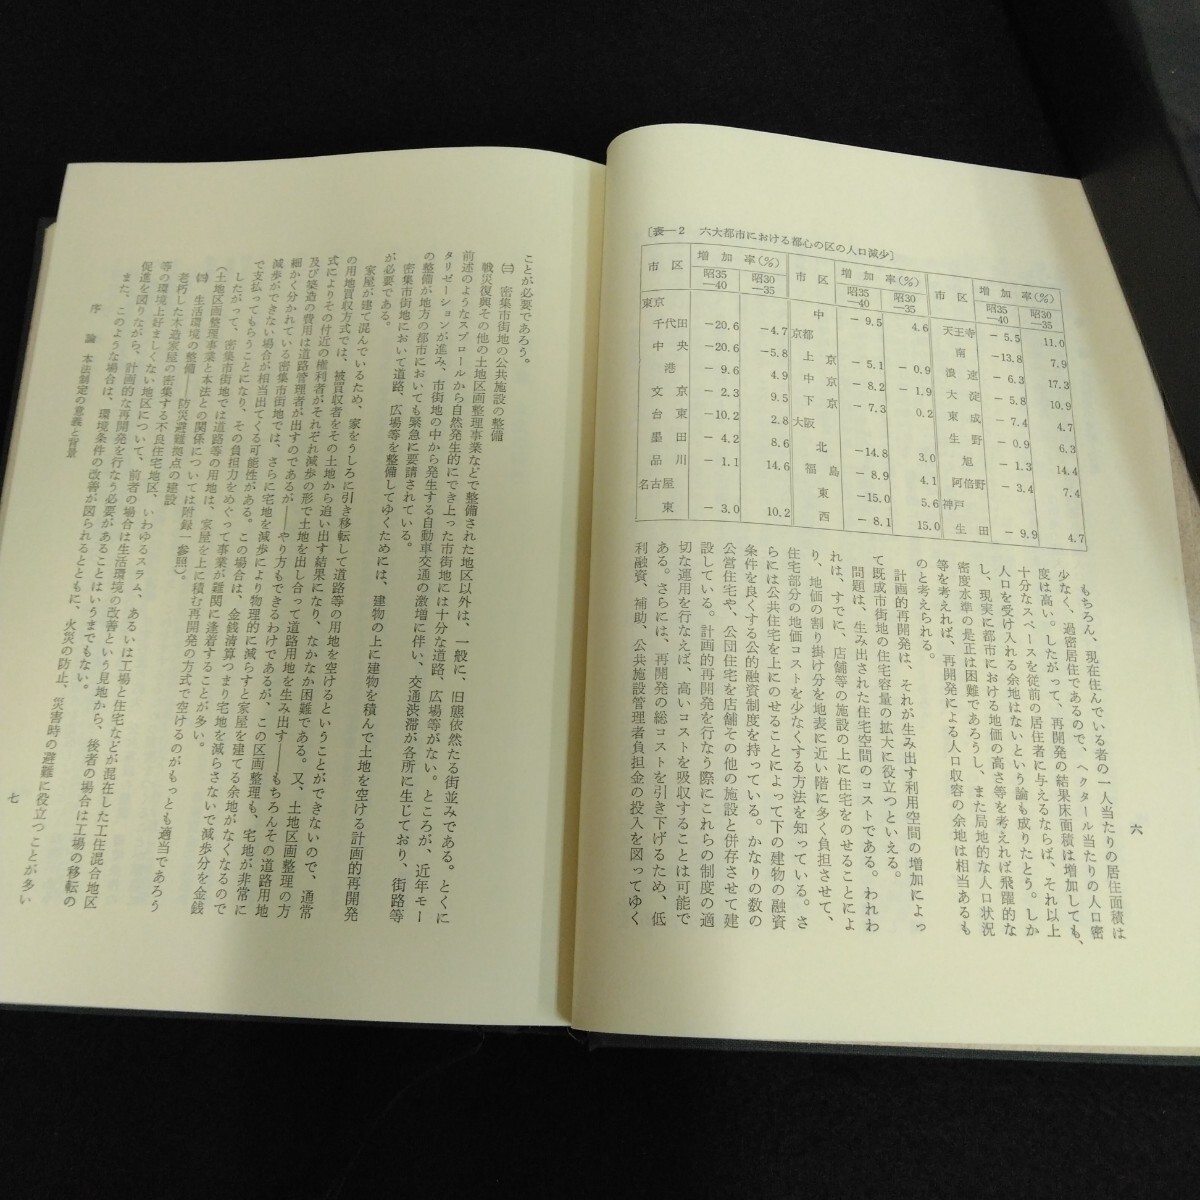 六
〔表―2　六大都市における都心の区の人口減少〕
市　区　増　加　率(%)　市　区　増　加　率(%)　市　区　増　加　率(%)
昭35―40　昭30―35　昭35―40　昭30―35　昭35―40　昭30―35
東京
千代田　－20.6　－4.7
中　央　－20.6　－5.8
港　－ 9.6　4.9
文　京　－ 2.3　9.5
台　東　－10.2　2.8
墨　田　－ 4.2　8.6
品　川　－ 1.1　14.6
名古屋
東　－ 3.0　10.2
中　－ 9.5　4.6
京都
上　京　－ 5.1　－ 0.9
中　京　－ 8.2　－ 1.9
下　京　－ 7.3　0.2
大阪
北　－14.8　3.0
福　島　－ 8.9　4.1
東　－15.0　5.6
西　－ 8.1　15.0
天王寺　－ 5.5　11.0
南　－13.8　7.9
浪　速　－ 6.3　17.3
大　淀　－ 5.8　10.9
東　成　－ 7.4　4.7
生　野　－ 0.9　6.3
旭　－ 1.3　14.4
阿倍野　－ 3.4　7.4
神戸
生　田　－ 9.9　4.7
もちろん、現在住んでいる者の一人当たりの居住面積は
少なく、過密居住であるので、ヘクタール当たりの人口密
度は高い。したがって、再開発の結果床面積は増加しても、
十分なスペースを従前の居住者に与えるならば、それ以上
人口を受け入れる余地はないという論も成りたとう。しか
し、現実に都市における地価の高さ等を考えれば飛躍的な
密度水準の是正は困難であろうし、また局地的な人口状況
等を考えれば、再開発による人口収容の余地は相当あるも
のと考えられる。
計画的再開発は、それが生み出す利用空間の増加によっ
て既成市街地の住宅容量の拡大に役立つといえる。
問題は、生み出された住宅空間のコストである。われわ
れは、すでに、店舗等の施設の上に住宅をのせることによ
り、地価の割り掛け分を地表に近い階に多く負担させて、
住宅部分の地価コストを少なくする方法を知っている。さ
らには公共住宅を上にのせることによって下の建物の融資
条件を良くする公的融資制度を持っている。かなりの数の
公営住宅や、公団住宅を店舗その他の施設と併存させて建
設している。計画的再開発を行なう際にこれらの制度の適
切な運用を行なえば、高いコストを吸収することは可能で
ある。さらには、再開発の総コストを引き下げるため、低
利融資、補助、公共施設管理者負担金の投入を図ってゆく
ことが必要であろう。
㈢　密集市街地の公共施設の整備
戦災復興その他の土地区画整理事業などで整備された地区以外は、一般に、旧態依然たる街並みである。とくに
前述のようなスプロールから自然発生的にでき上った市街地には十分な道路、広場等がない。ところが、近年モー
タリゼーションが進み、市街地の中から発生する自動車交通の激増に伴い、交通渋滞が各所に生じており、街路等
の整備が地方の都市においても緊急に要請されている。
密集市街地において道路、広場等を整備してゆくためには、建物の上に建物を積んで土地を空ける計画的再開発
が必要である。
家屋が建て混んでいるため、家をうしろに引き移転して道路等の用地を空けるということができないので、通常
の用地買収方式では、被買収者をその土地から追い出す結果になり、なかなか困難である。又、土地区画整理の方
式によりその付近の権利者がそれぞれ減歩の形で土地を出し合って道路用地を生み出す――もちろんその道路用地
及び築造の費用は道路管理者が出すのであるが――やり方もできるわけであるが、この区画整理も、宅地が非常に
細かく分かれている密集市街地では、さらに宅地を減歩により物理的に減らすと家屋を建てる余地がなくなるので
減歩ができない場合が相当出てくる可能性がある。この場合は、金銭清算つまり宅地を減らさないで減歩分を金銭
で支払ってもらうことになり、その負担力をめぐって事業が難関に逢着することが多い。
したがって、密集市街地では道路等の用地は、家屋を上に積む再開発の方式で空けるのがもっとも適当であろう
（土地区画整理事業と本法との関係については附録一参照）。
㈣　生活環境の整備――防災避難拠点の建設
老朽した木造家屋の密集する不良住宅地区、いわゆるスラム、あるいは工場と住宅などが混在した工住混合地区
等の環境上好ましくない地区について、前者の場合は生活環境の改善という見地から、後者の場合は工場の移転の
促進を図りながら、計画的な再開発を行なう必要があることはいうまでもない。
また、このような場合は、環境条件の改善が図られるとともに、火災の防止、災害時の避難に役立つことが多い
序　論　本法制定の意義と背景
七